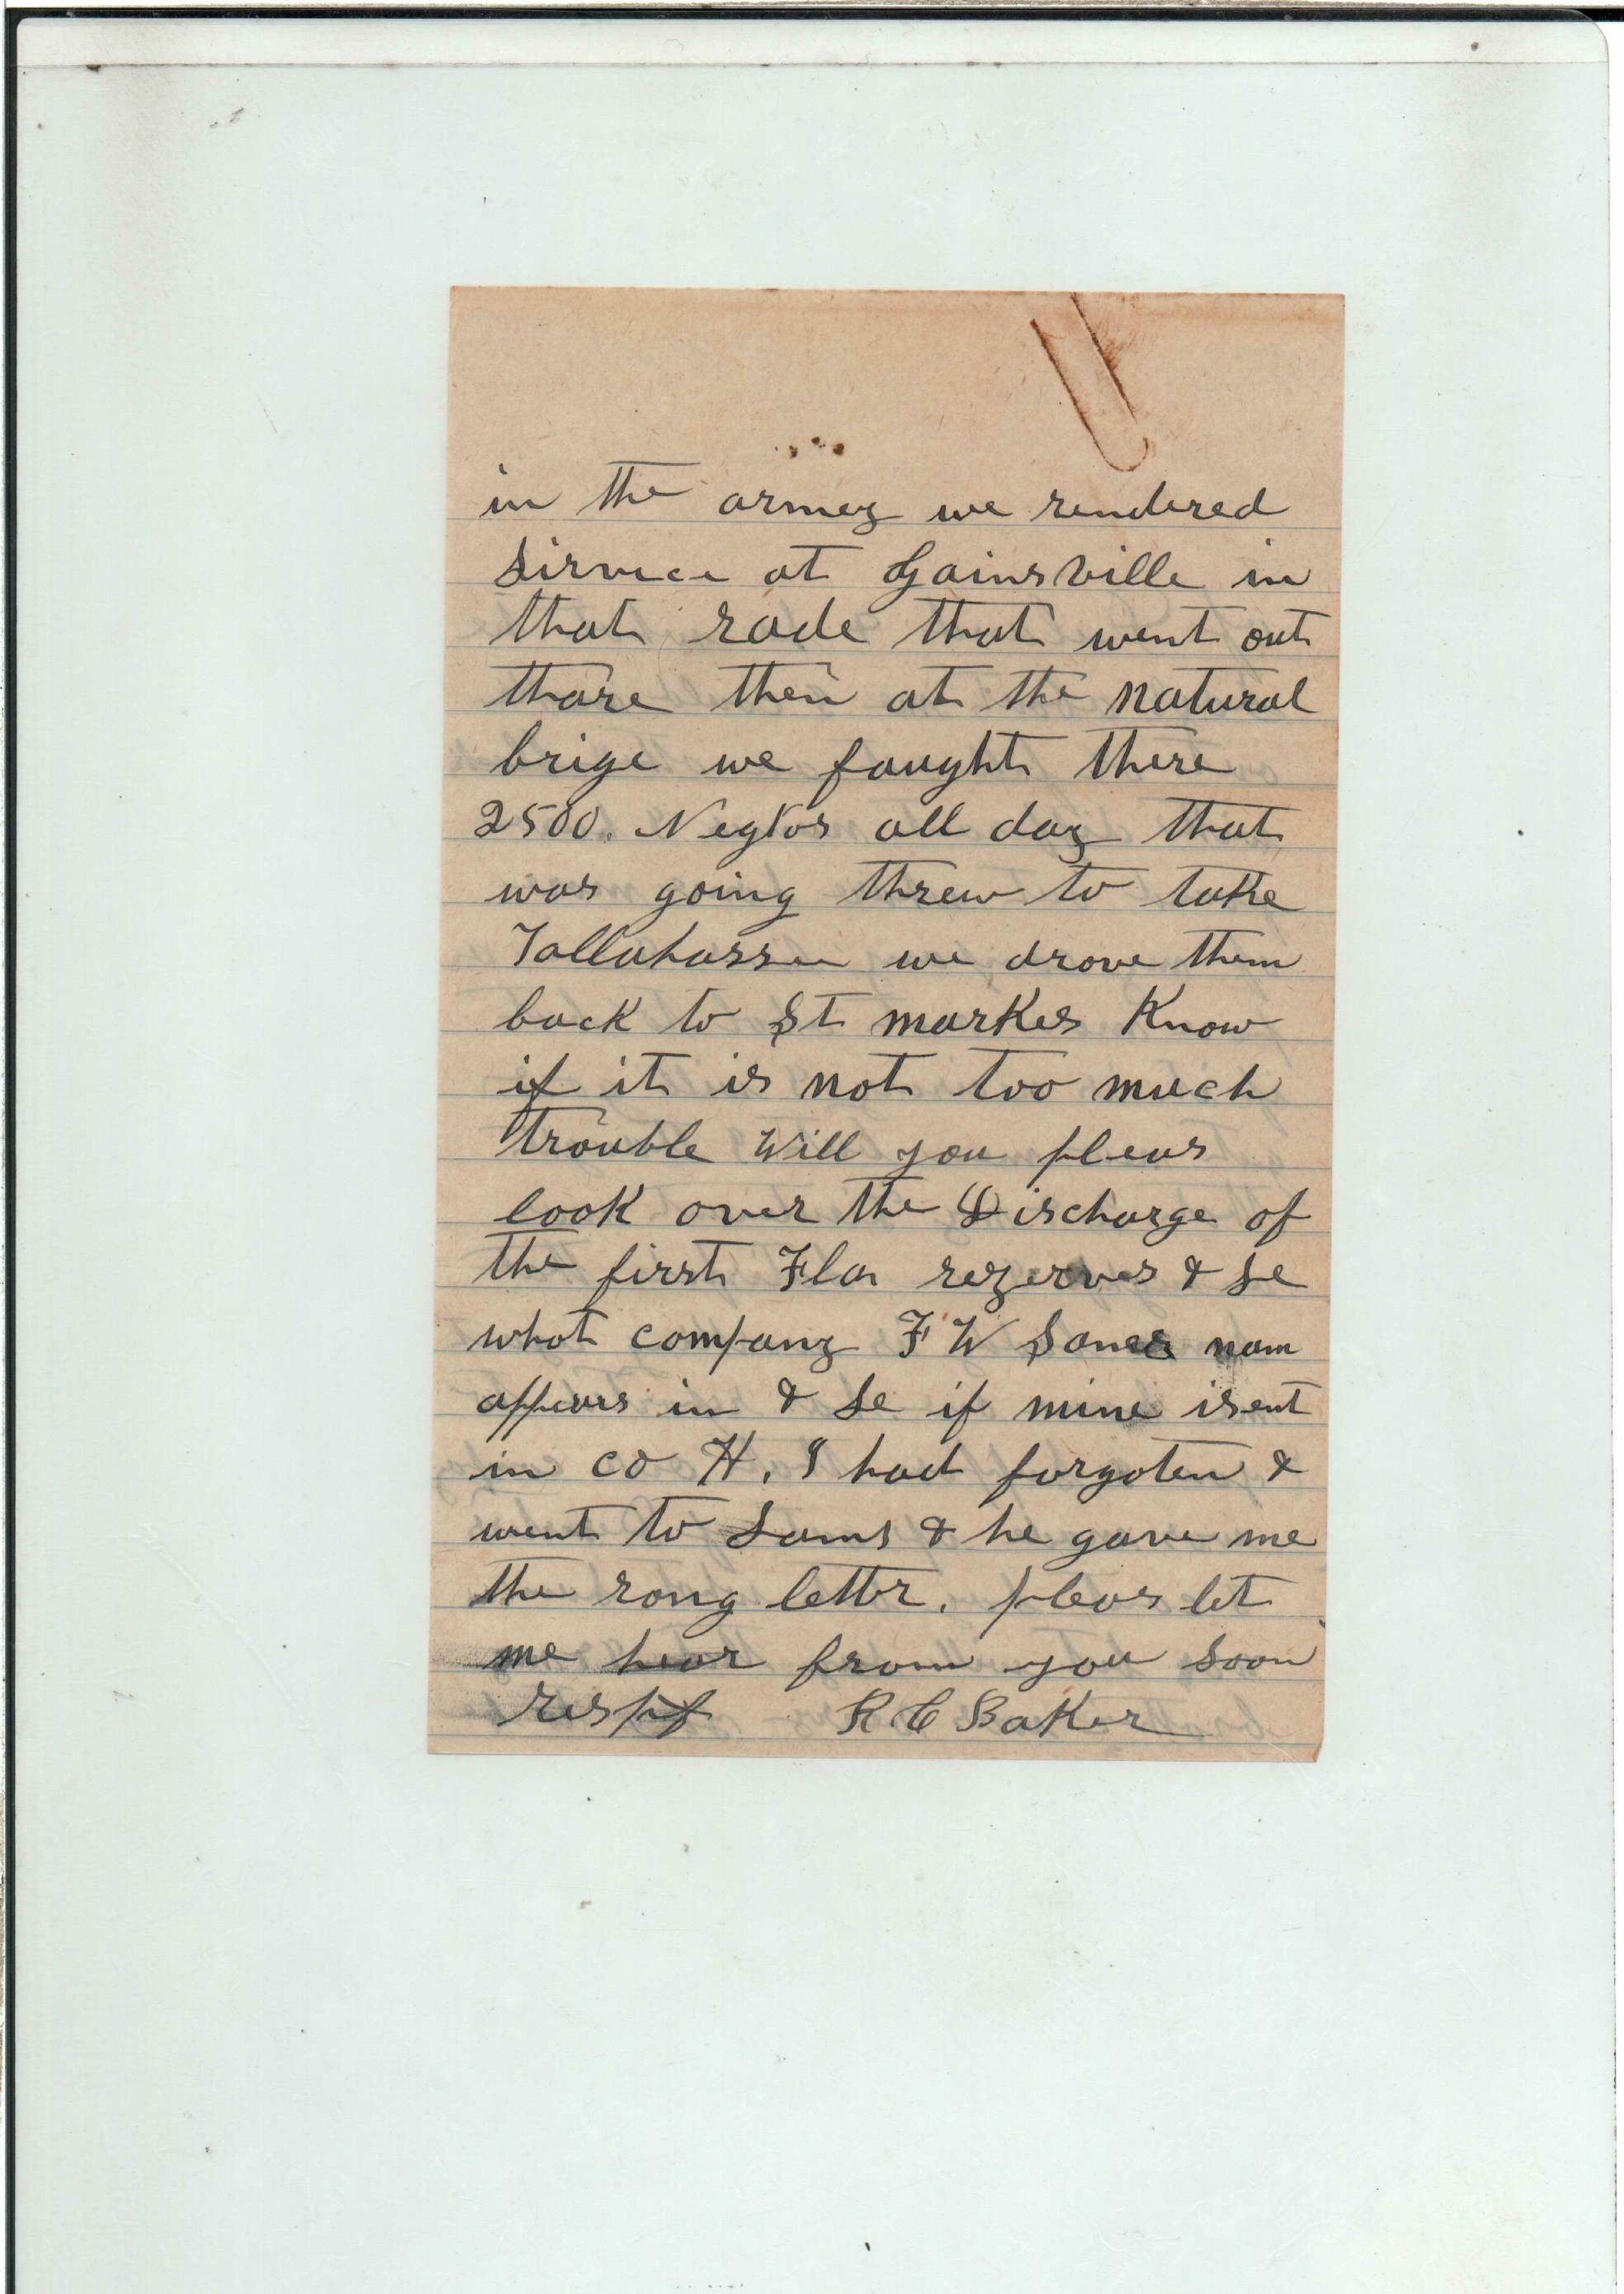 in the armey we rendered
Sirvice at Gainsville in
that rade that went out
thare then at the natural
brige we faught there
2500. Negros all day that
was going threw to take
Tallahassee we drove them
back to St markes Know
if it is not too much
trouble will you pleas
look over the Discharge of
the first Fla rezerves & se
what company F W Sames nam
appears in & se if mine isent
in co H. I had forgoten &
went to Sams & he gave me
the rong letter. pleas let
me hear from you soon
respf R C Baker